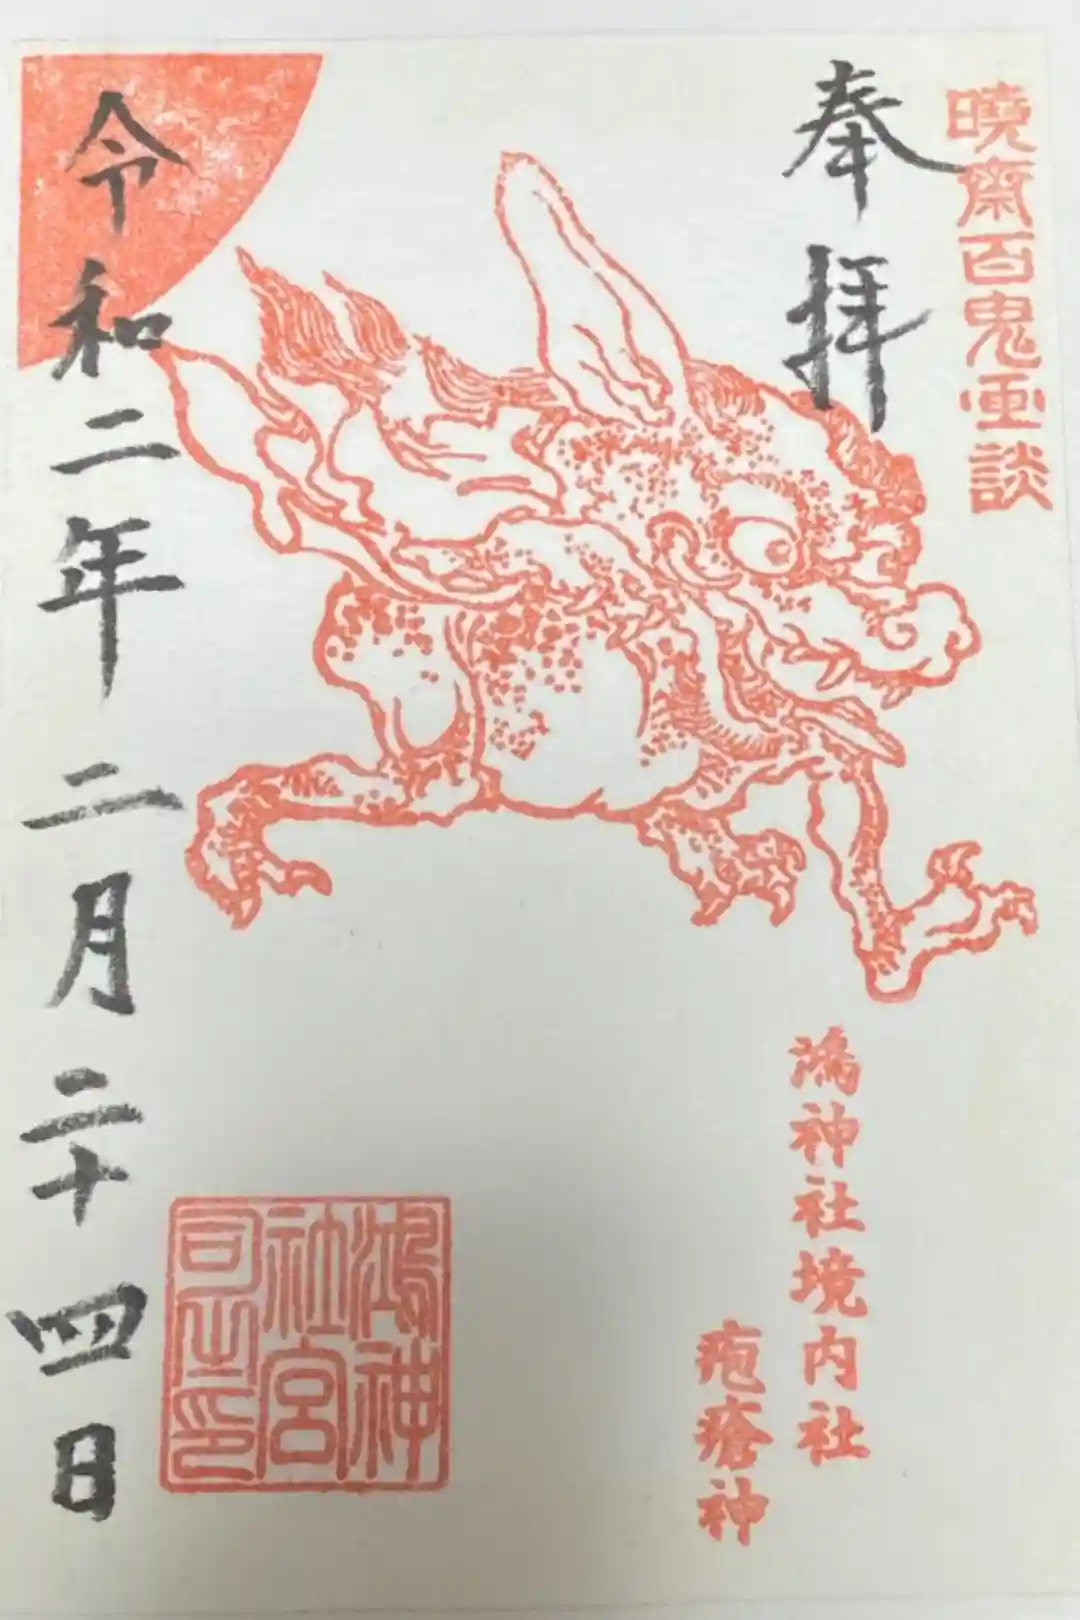 暁斎百鬼画談
奉拝
鴻神社境内社
疱瘡神
鴻神
社宮
司之印
令和二年二月二十四日